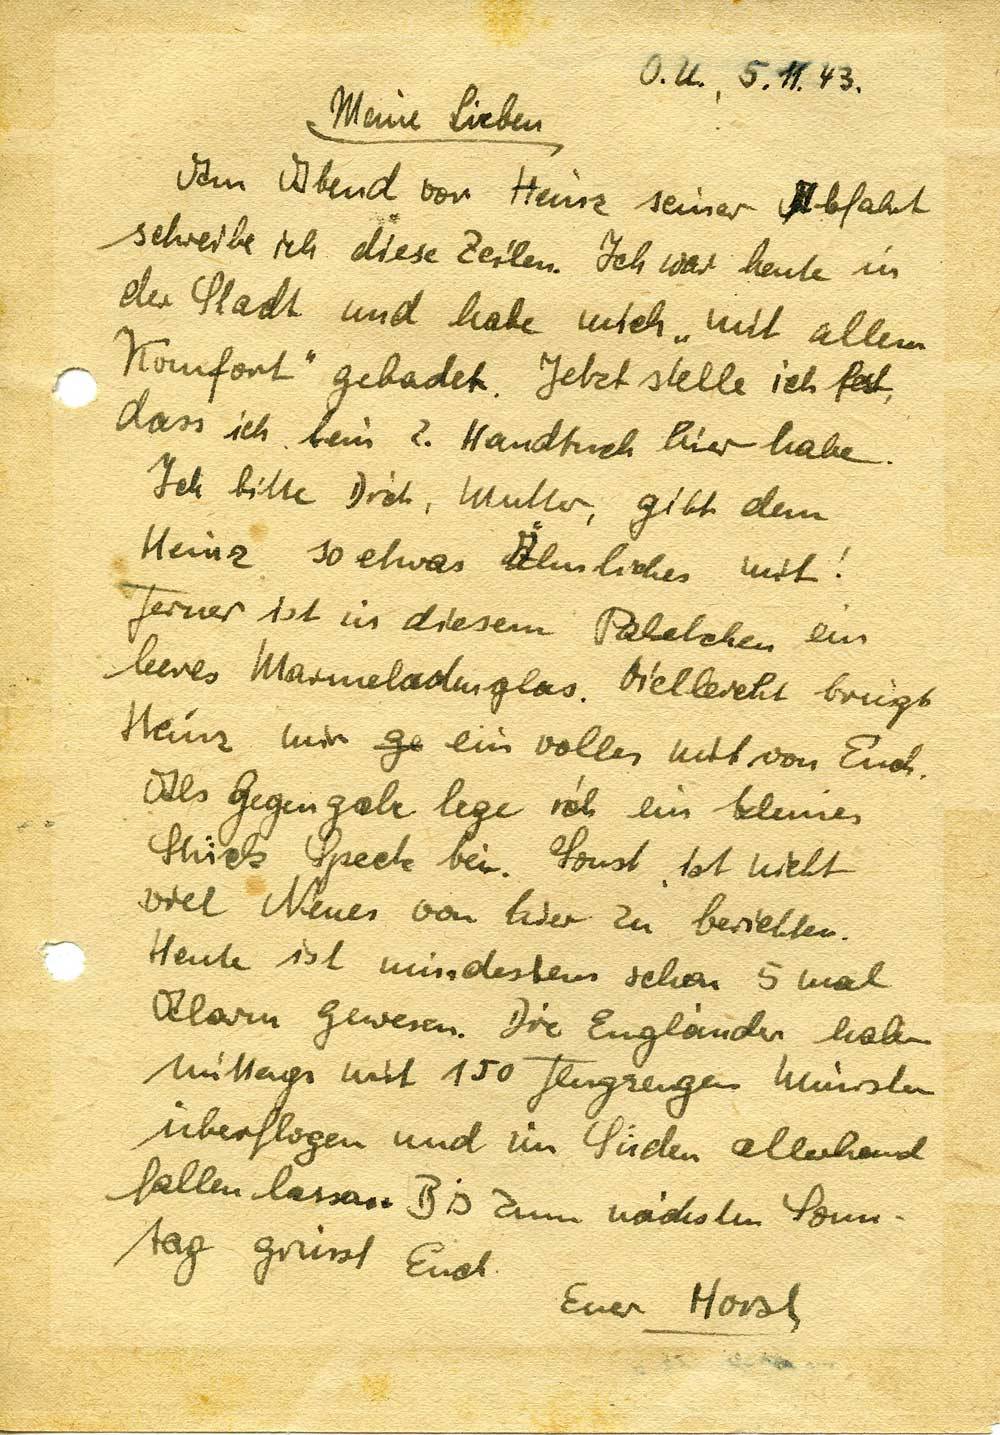 O.U., 5.11.43.
Meine Lieben
Am Abend vor Heinz seiner Abfahrt
schreibe ich diese Zeilen. Ich war heute in
der Stadt und habe mich „mit allem
Komfort" gebadet. Jetzt stelle ich fest,
dass ich kein 2. Handtuch hier habe.
Ich bitte Dich, Mutter, gibt dem
Heinz so etwas Ähnliches mit!
Ferner ist in diesem Päckchen ein
leeres Marmeladenglas. Vielleicht bringt
Heinz mir ge ein volles mit von Euch.
Als Gegengabe lege ich ein kleines
Stück Speck bei. Sonst ist nicht
viel Neues von hier zu berichten.
Heute ist mindestens schon 5 mal
Alarm gewesen. Die Engländer haben
Mittags mit 150 Flugzeugen Münster
überflogen und im Süden allerhand
fallen lassen Bis zum nächsten Sonn-
tag grüsst Euch
Euer Horst